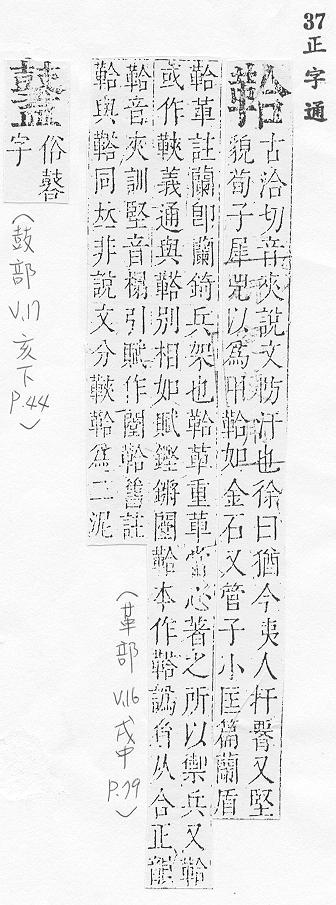 37正字通
鞈
古洽切音夾說文防汗也徐曰猶今夷人扞臂又堅
貌荀子犀兕以爲甲鞈如金石又管子小匡篇蘭盾
鞈革註蘭卽蘭錡兵架也鞈革重革當心著之所以禦兵又鞈
或作䩡義通與鞳別相如賦鏗鏘闛鞈本作鞳譌省从合正韻
鞈音夾訓堅音榻引賦作闛鞈舊註
鞈與鞳同𠀤非說文分䩡鞈爲二泥
(革部 V.16 戌中 P.79)
俗鼛
字
(鼓部 V.17 亥下 P.44)